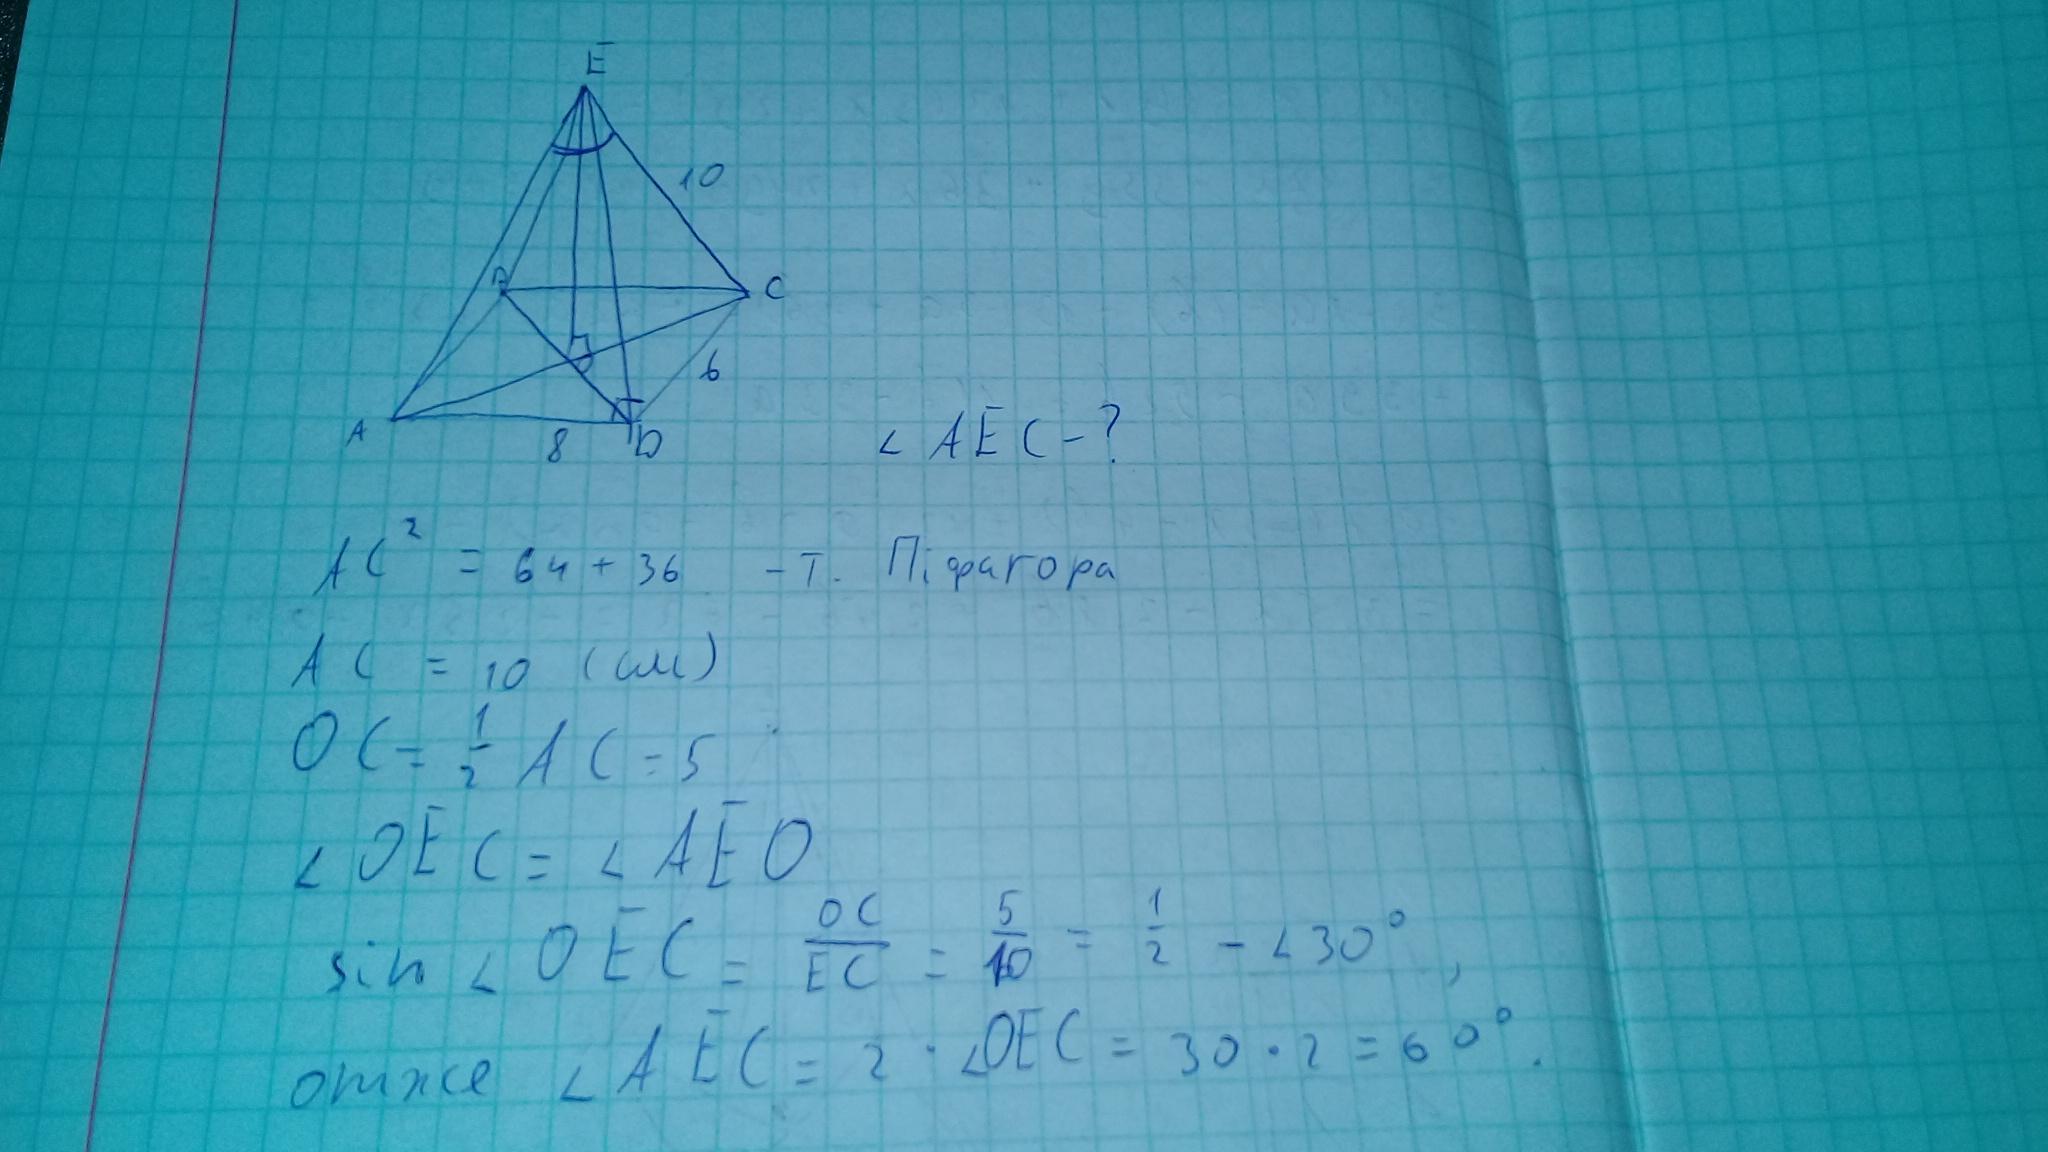 E
10
B
C
6
A
8
D
∠ AEC - ?
AC² = 64 + 36 - т. Піфагора
AC = 10 (см)
OC = 1/2 AC = 5
∠ OEC = ∠ AEO
sin ∠ OEC = OC/EC = 5/10 = 1/2 - ∠30°,
отже ∠ AEC = 2 · ∠OEC = 30 · 2 = 60°.